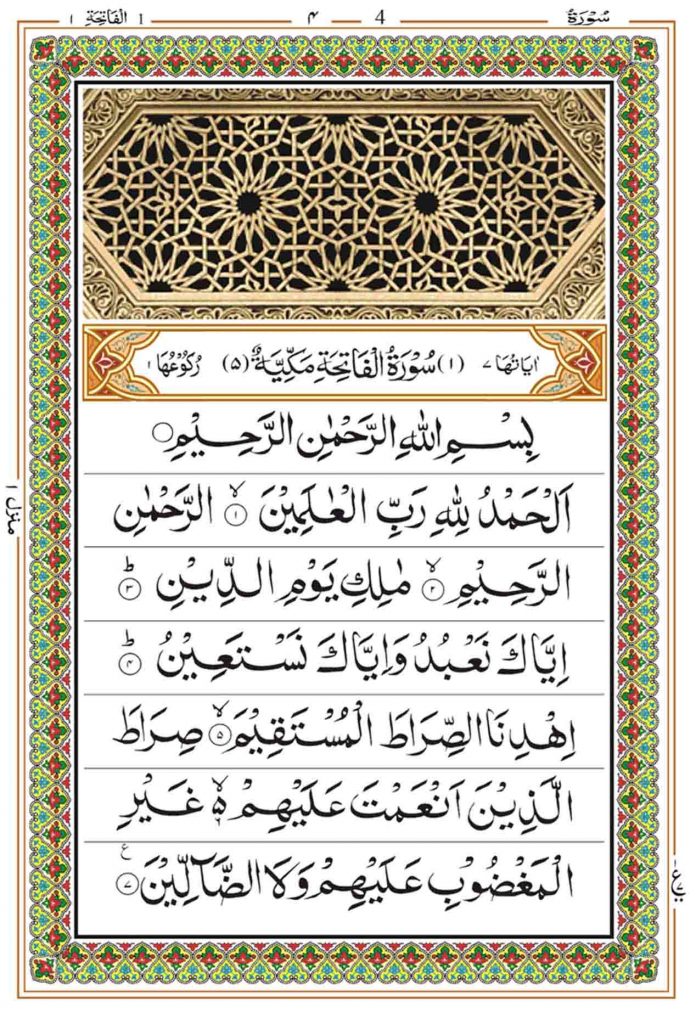 سُوْرَةٌ 4 ۴ 1 اَلْفَاتِحَةِ ١
اٰيَاتُهَا ٧ (١) سُوْرَةُ الْفَاتِحَةِ مَكِّيَّةٌ (٥) رُكُوْعُهَا ١
بِسْمِ اللّٰهِ الرَّحْمٰنِ الرَّحِيْمِ ○
اَلْحَمْدُ لِلّٰهِ رَبِّ الْعٰلَمِيْنَ ۙ ١ الرَّحْمٰنِ
الرَّحِيْمِ ۙ ٢ مٰلِكِ يَوْمِ الدِّيْنِ ؕ ٣
اِيَّاكَ نَعْبُدُ وَاِيَّاكَ نَسْتَعِيْنُ ؕ ۴
اِهْدِنَا الصِّرَاطَ الْمُسْتَقِيْمَ ۙ ۵ صِرَاطَ
الَّذِيْنَ اَنْعَمْتَ عَلَيْهِمْ ۙ۬ ۶ غَيْرِ
الْمَغْضُوْبِ عَلَيْهِمْ وَلَا الضَّآلِّيْنَ ٧ ع
منزل ١